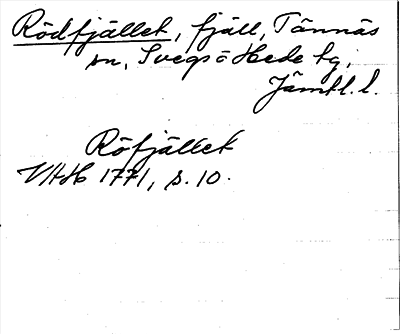 Rödfjället, fjäll, Tännäs
sn, Svegs o Hede tg,
Jämtl. l.
Röfjället
VHH 1771, s. 10.